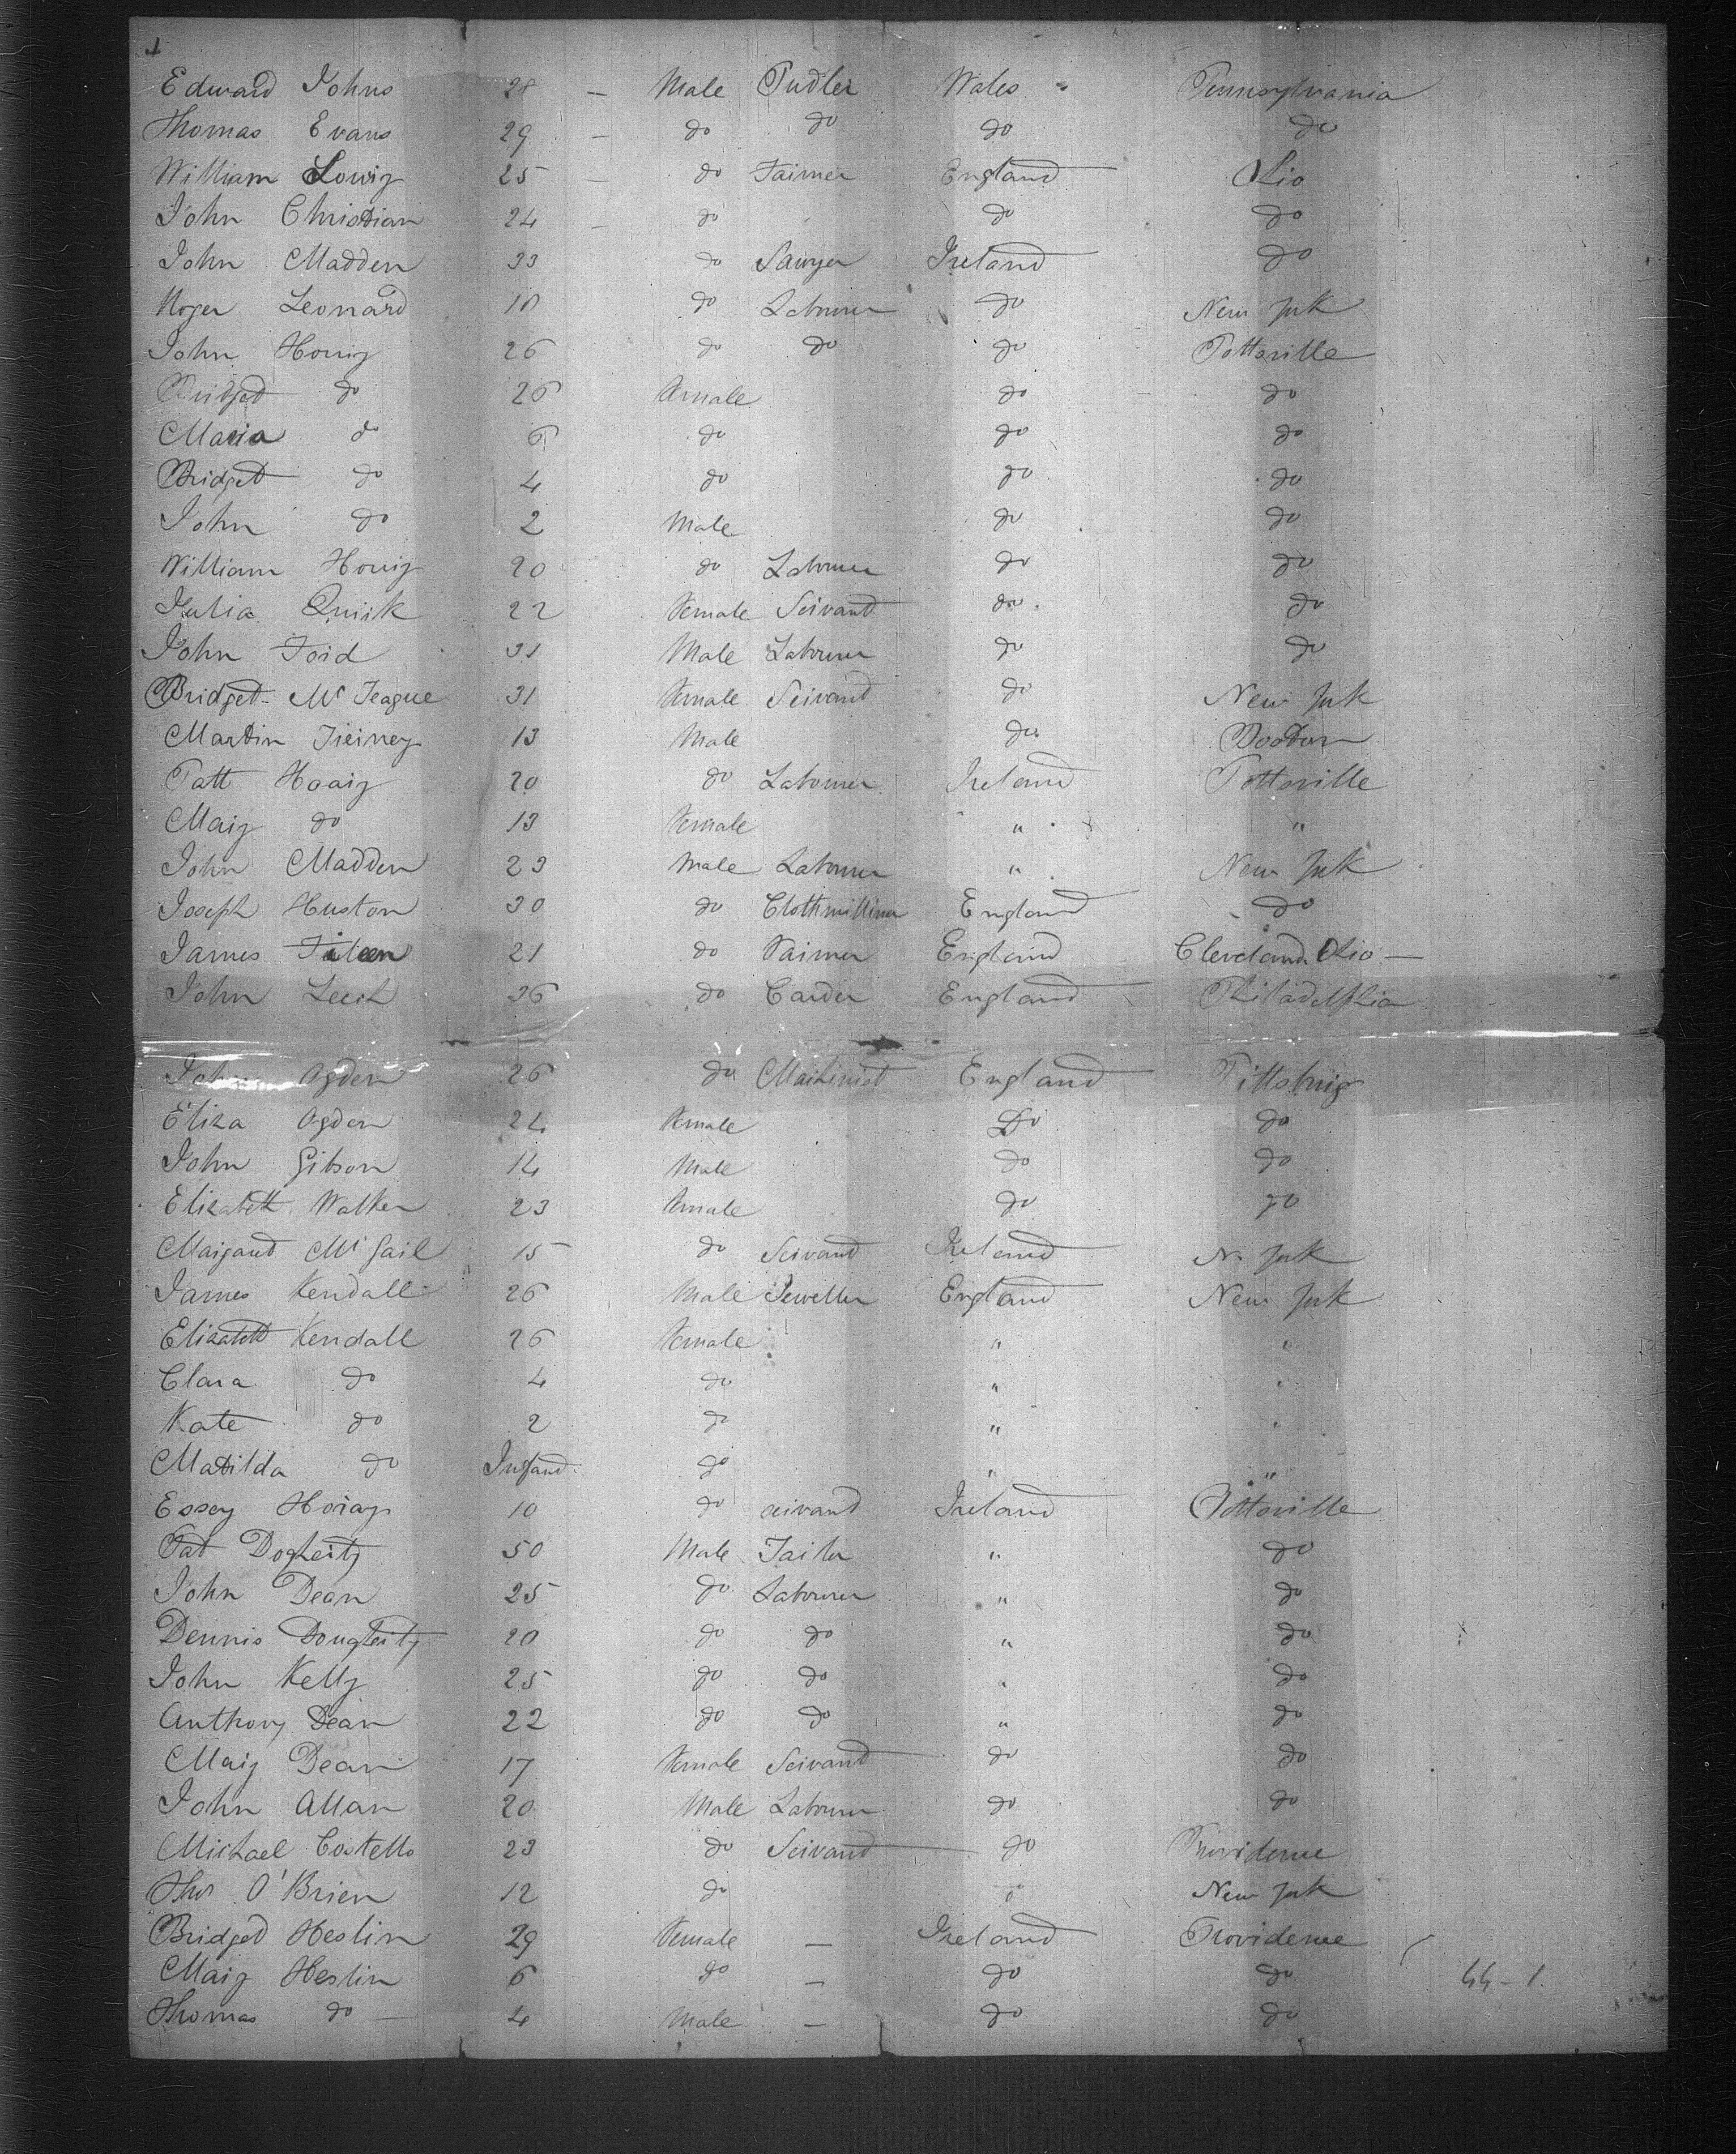 Edward Johns 28 — Male Pudler Wales Pennsylvania
Thomas Evans 29 — do do do do
William Lowry 25 — do Farmer England Ohio
John Christian 24 — do do do
John Madden 33 do Sawyer Ireland do
Roger Leonard 18 do Labourer do New York
John Horry 26 do do do Pottsville
Bridget do 26 Female do do
Maria do 6 do do do
Bridget do 4 do do do
John do 2 Male do do
William Horry 20 do Labourer do do
Julia Quirk 22 Female Servant do do
John Ford 31 Male Labourer do do
Bridget McTeague 31 Female Servant do New York
Martin Tierney 13 Male do Boston
Patt Hoary 20 do Labourer Ireland Pottsville
Mary do 13 Female " "
John Madden 23 Male Labourer " New York
Joseph Huston 30 do England do
James 21 do Farmer England Cleveland. Ohio —
John Leech 36 do Carder England Philadelphia
John Ogden 26 do Machinist England Pittsburg
Eliza Ogden 24 Female Do do
John Gibson 14 Male do do
Elizabeth Walker 23 Female do do
Margaret McGarl 15 do Servant Ireland N. York
James Kendall 26 Male Jeweller England New York
Elizabeth Kendall 26 Female " "
Clara do 4 do " "
Kate do 2 do " "
Matilda do Infant do " "
Essey Horay 10 do servant Ireland Pottsville
Pat Dogherty 50 Male Tailor " do
John Dean 25 do Labourer " do
Dennis Dougherty 20 do do " do
John Kelly 25 do do " do
Anthony Dean 22 do do " do
Mary Dean 17 Female Servant do do
John Allan 20 Male Labourer do do
Michael Costello 23 do Servant do Providence
Thos O'Brien 12 do " New York
Bridget Heslin 29 Female — Ireland Providence
Mary Heslin 6 do — do do 44-1.
Thomas do — 4 Male — do do